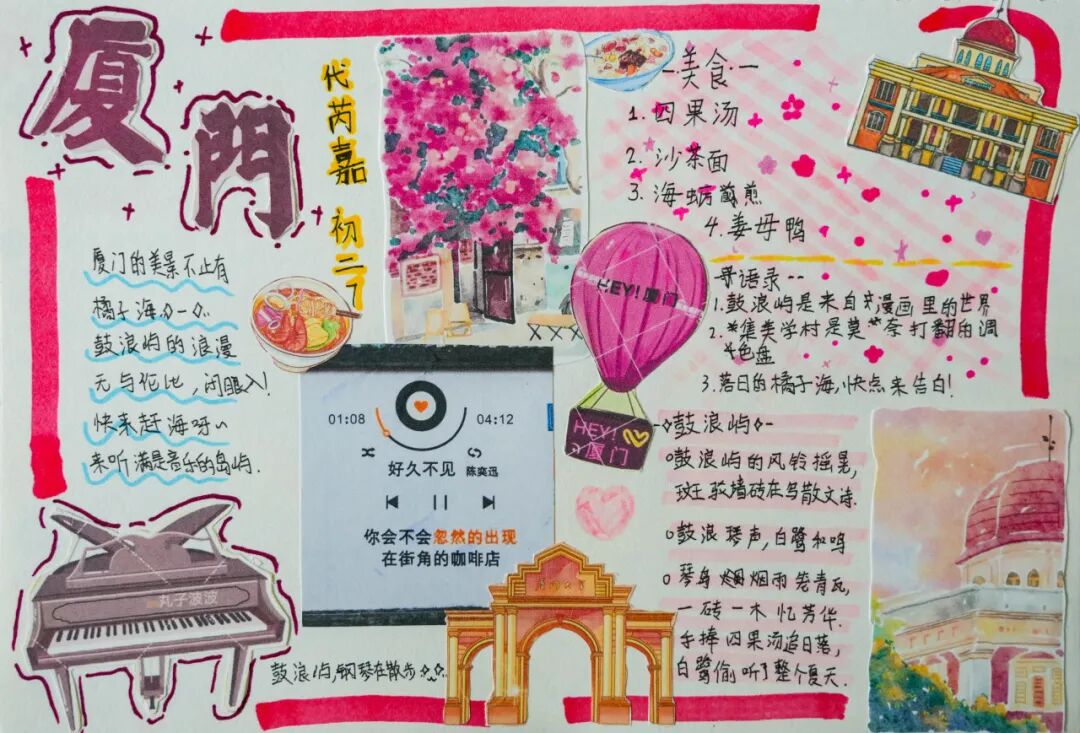 厦門
代芮嘉 初二7
厦门的美景不止有
橘子海
鼓浪屿的浪漫
无与伦比，闭眼入！
快来赶海呀~
来听满是音乐的岛屿.
丸子波波
鼓浪屿，钢琴在散步
01:08
04:12
好久不见 陈奕迅
你会不会忽然的出现
在街角的咖啡店
HEY! 厦门
HEY!
厦门
美食
1. 四果汤
2. 沙茶面
3. 海蛎煎
4. 姜母鸭
语录
1. 鼓浪屿是来自漫画里的世界
2. 集美学村是莫奈打翻的调
色盘
3. 落日的橘子海，快点来告白！
鼓浪屿
鼓浪屿的风铃摇晃，
斑驳墙砖在写散文诗.
鼓浪琴声，白鹭和鸣
琴岛烟雨笼青瓦，
一砖一木忆芳华.
手捧四果汤追日落，
白鹭偷听了整个夏天.